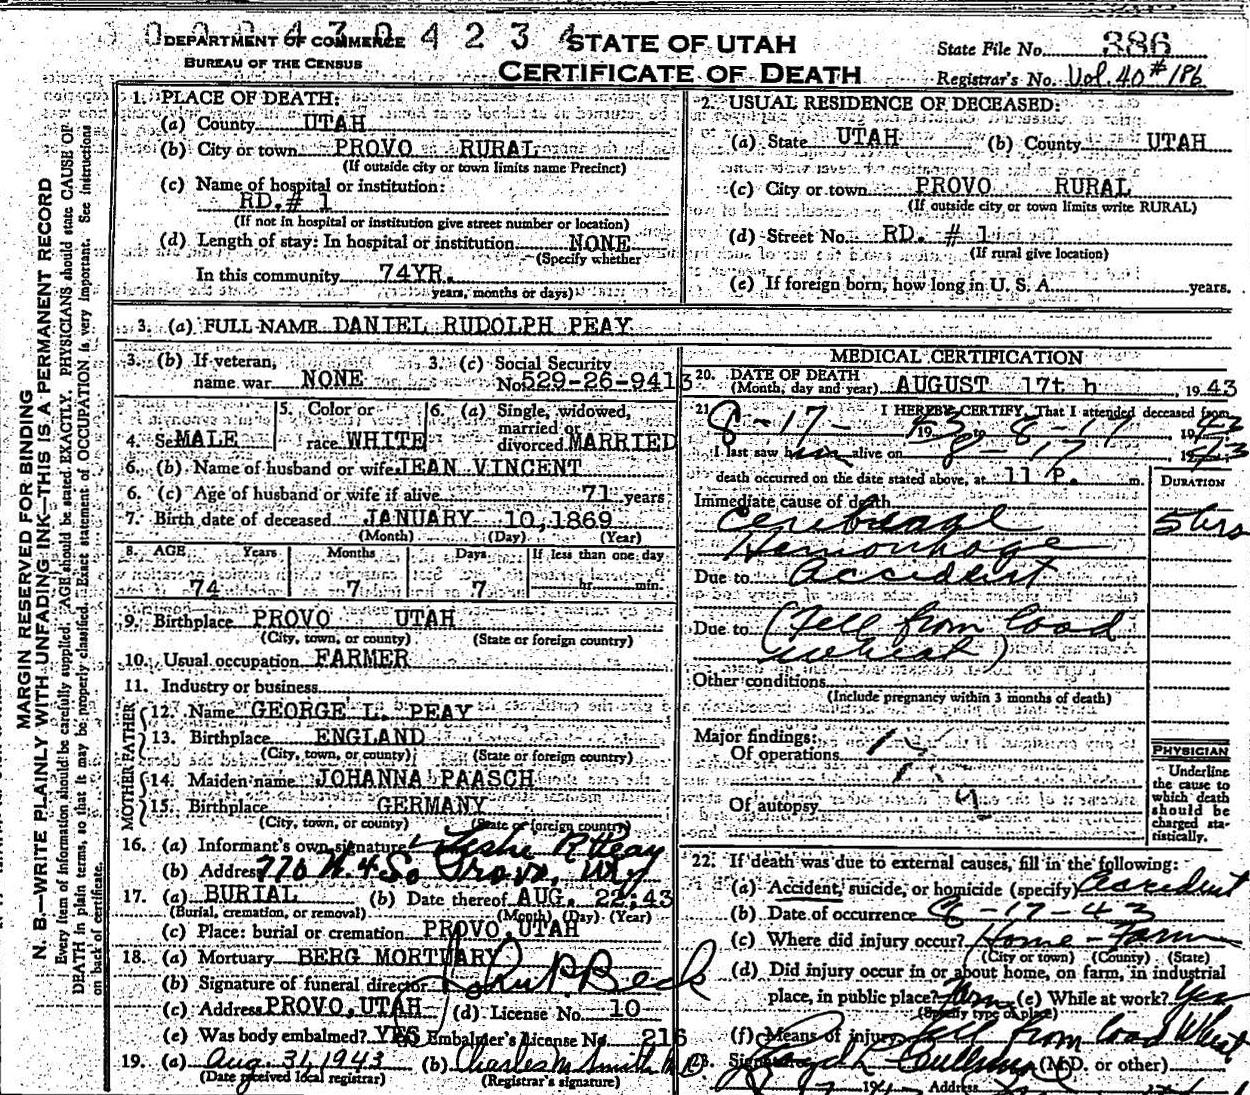 0 0 0 4 3 0 4 2 3 4
DEPARTMENT OF COMMERCE
BUREAU OF THE CENSUS
STATE OF UTAH
CERTIFICATE OF DEATH
State File No. 386
Registrar's No. Vol. 40 #186
MARGIN RESERVED FOR BINDING
N. B.—WRITE PLAINLY WITH UNFADING INK—THIS IS A PERMANENT RECORD
Every item of information should be carefully supplied. AGE should be stated EXACTLY. PHYSICIANS should state CAUSE OF
DEATH in plain terms, so that it may be properly classified. Exact statement of OCCUPATION is very important. See instructions
on back of certificate.
1. PLACE OF DEATH:
(a) County UTAH
(b) City or town PROVO RURAL
(If outside city or town limits name Precinct)
(c) Name of hospital or institution:
RD.# 1
(If not in hospital or institution give street number or location)
(d) Length of stay: In hospital or institution NONE
(Specify whether
In this community 74YR.
years, months or days)
2. USUAL RESIDENCE OF DECEASED:
(a) State UTAH (b) County UTAH
(c) City or town PROVO RURAL
(If outside city or town limits write RURAL)
(d) Street No. RD. # 1
(If rural give location)
(e) If foreign born, how long in U. S. A. years.
3. (a) FULL NAME DANIEL RUDOLPH PEAY
3. (b) If veteran, name war NONE
3. (c) Social Security No. 529-26-9413
4. Sex MALE
5. Color or race WHITE
6. (a) Single, widowed, married or divorced MARRIED
6. (b) Name of husband or wife JEAN VINCENT
6. (c) Age of husband or wife if alive 71 years
7. Birth date of deceased JANUARY 10,1869
(Month) (Day) (Year)
8. AGE Years Months Days If less than one day
74 7 7 hr. min.
9. Birthplace PROVO UTAH
(City, town, or county) (State or foreign country)
10. Usual occupation FARMER
11. Industry or business
FATHER
12. Name GEORGE L. PEAY
13. Birthplace ENGLAND
(City, town, or county) (State or foreign country)
MOTHER
14. Maiden name JOHANNA PAASCH
15. Birthplace GERMANY
(City, town, or county) (State or foreign country)
16. (a) Informant's own signature Leslie R Peay
(b) Address 770 W. 4 So Provo,
17. (a) BURIAL (b) Date thereof AUG. 22,43
(Burial, cremation, or removal) (Month) (Day) (Year)
(c) Place: burial or cremation PROVO,UTAH
18. (a) Mortuary BERG MORTUARY
(b) Signature of funeral director Beck
(c) Address PROVO,UTAH (d) License No. 10
(e) Was body embalmed? YES Embalmer's License No. 216
19. (a) Aug. 31, 1943 (b) Charles M Smith
(Date received local registrar) (Registrar's signature)
MEDICAL CERTIFICATION
20. DATE OF DEATH
(Month, day and year) AUGUST 17th 1943
21. I HEREBY CERTIFY, That I attended deceased from
8-17- 1943 to 8-17 1943
I last saw him alive on 8-17 1943
death occurred on the date stated above, at 11 P. m.
DURATION
Immediate cause of death
Cerebral 5 hrs
Hemorrhage
Due to Accident
Due to (Fell from load
wheat)
Other conditions
(Include pregnancy within 3 months of death)
Major findings:
Of operations
Of autopsy
PHYSICIAN
Underline
the cause to
which death
should be
charged sta-
tistically.
22. If death was due to external causes, fill in the following:
(a) Accident, suicide, or homicide (specify) Accident
(b) Date of occurrence 8-17-43
(c) Where did injury occur? Home - Farm
(City or town) (County) (State)
(d) Did injury occur in or about home, on farm, in industrial
place, in public place? Farm (e) While at work? Yes
(Specify type of place)
(f) Means of injury Fell from load Wheat
23. Signature (M.D. or other)
Address